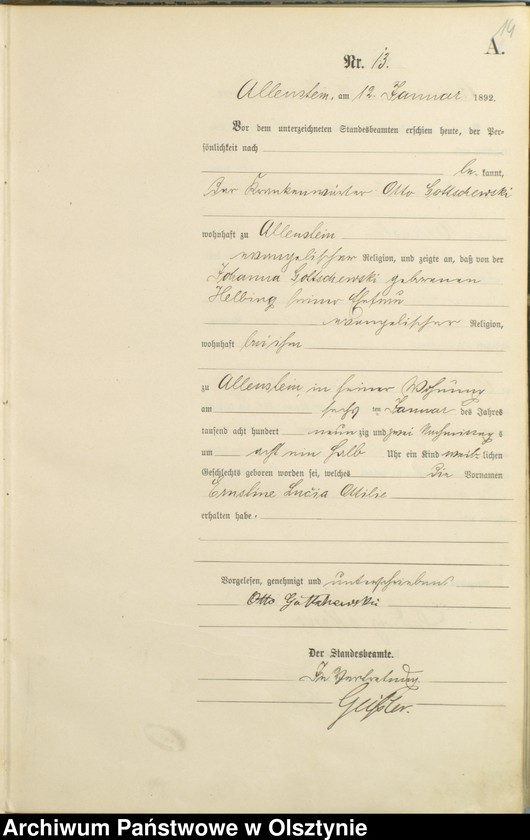 14
A.
Nr. 13.
Allenstein, am 12. Januar 1892.
Vor dem unterzeichneten Standesbeamten erschien heute, der Per-
sönlichkeit nach
be kannt,
der Krankenwärter Otto Gottschewski
wohnhaft zu Allenstein
evangelischer Religion, und zeigte an, daß von der
Johanna Gottschewski geborenen
Helbing seiner Ehefrau
evangelischer Religion,
wohnhaft bei ihm
zu Allenstein, in seiner Wohnung
am sechs ten Januar des Jahres
tausend acht hundert neun zig und zwei Nachmittags
um acht ein halb Uhr ein Kind weib lichen
Geschlechts geboren worden sei, welches die Vornamen
Ernstine Lucia Ottilie
erhalten habe.
Vorgelesen, genehmigt und unterschrieben
Otto Gottschewski
Der Standesbeamte.
In Vertretung
Geißler.
Archiwum Państwowe w Olsztynie